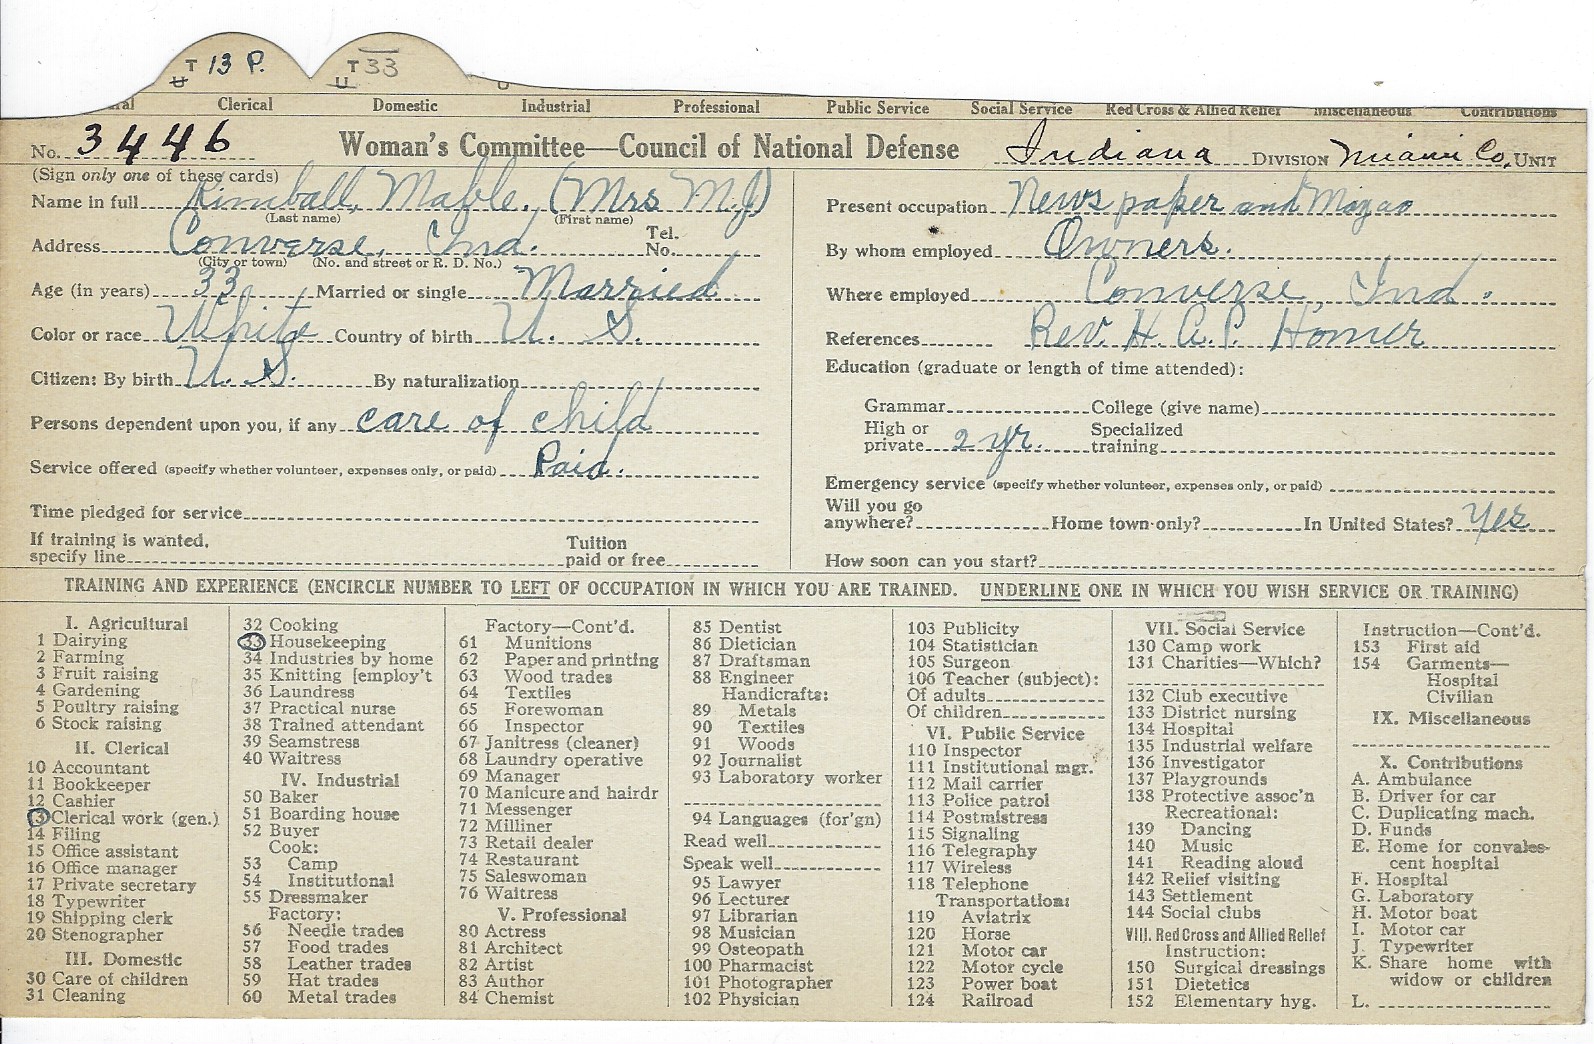 T 13 P. T 33
U U U
ral Clerical Domestic Industrial Professional Public Service Social Service Red Cross & Allied Relief Miscellaneous Contributions
No. 3446 Woman's Committee—Council of National Defense Indiana DIVISION Miami Co. UNIT
(Sign only one of these cards)
Name in full Kimball, Mable. (Mrs M.J)
(Last name) (First name)
Address Converse, Ind. Tel. No.
(City or town) (No. and street or R. D. No.)
Age (in years) 33 Married or single Married
Color or race White Country of birth U. S.
Citizen: By birth U. S. By naturalization
Persons dependent upon you, if any care of child
Service offered (specify whether volunteer, expenses only, or paid) Paid.
Time pledged for service
If training is wanted, specify line Tuition paid or free
Present occupation News paper and
By whom employed Owners.
Where employed Converse, Ind.
References Rev. H. A. P. Homer
Education (graduate or length of time attended):
Grammar College (give name)
High or private 2 yr. Specialized training
Emergency service (specify whether volunteer, expenses only, or paid)
Will you go anywhere? Home town only? In United States? Yes
How soon can you start?
TRAINING AND EXPERIENCE (ENCIRCLE NUMBER TO LEFT OF OCCUPATION IN WHICH YOU ARE TRAINED. UNDERLINE ONE IN WHICH YOU WISH SERVICE OR TRAINING)
I. Agricultural
1 Dairying
2 Farming
3 Fruit raising
4 Gardening
5 Poultry raising
6 Stock raising
II. Clerical
10 Accountant
11 Bookkeeper
12 Cashier
13 Clerical work (gen.)
14 Filing
15 Office assistant
16 Office manager
17 Private secretary
18 Typewriter
19 Shipping clerk
20 Stenographer
III. Domestic
30 Care of children
31 Cleaning
32 Cooking
33 Housekeeping
34 Industries by home
35 Knitting [employ't
36 Laundress
37 Practical nurse
38 Trained attendant
39 Seamstress
40 Waitress
IV. Industrial
50 Baker
51 Boarding house
52 Buyer
Cook:
53 Camp
54 Institutional
55 Dressmaker
Factory:
56 Needle trades
57 Food trades
58 Leather trades
59 Hat trades
60 Metal trades
Factory—Cont'd.
61 Munitions
62 Paper and printing
63 Wood trades
64 Textiles
65 Forewoman
66 Inspector
67 Janitress (cleaner)
68 Laundry operative
69 Manager
70 Manicure and hairdr
71 Messenger
72 Milliner
73 Retail dealer
74 Restaurant
75 Saleswoman
76 Waitress
V. Professional
80 Actress
81 Architect
82 Artist
83 Author
84 Chemist
85 Dentist
86 Dietician
87 Draftsman
88 Engineer
Handicrafts:
89 Metals
90 Textiles
91 Woods
92 Journalist
93 Laboratory worker
94 Languages (for'gn)
Read well
Speak well
95 Lawyer
96 Lecturer
97 Librarian
98 Musician
99 Osteopath
100 Pharmacist
101 Photographer
102 Physician
103 Publicity
104 Statistician
105 Surgeon
106 Teacher (subject):
Of adults
Of children
VI. Public Service
110 Inspector
111 Institutional mgr.
112 Mail carrier
113 Police patrol
114 Postmistress
115 Signaling
116 Telegraphy
117 Wireless
118 Telephone
Transportation:
119 Aviatrix
120 Horse
121 Motor car
122 Motor cycle
123 Power boat
124 Railroad
VII. Social Service
130 Camp work
131 Charities—Which?
132 Club executive
133 District nursing
134 Hospital
135 Industrial welfare
136 Investigator
137 Playgrounds
138 Protective assoc'n
Recreational:
139 Dancing
140 Music
141 Reading aloud
142 Relief visiting
143 Settlement
144 Social clubs
VIII. Red Cross and Allied Relief
Instruction:
150 Surgical dressings
151 Dietetics
152 Elementary hyg.
Instruction—Cont'd.
153 First aid
154 Garments—
Hospital
Civilian
IX. Miscellaneous
X. Contributions
A. Ambulance
B. Driver for car
C. Duplicating mach.
D. Funds
E. Home for convales-
cent hospital
F. Hospital
G. Laboratory
H. Motor boat
I. Motor car
J. Typewriter
K. Share home with
widow or children
L.